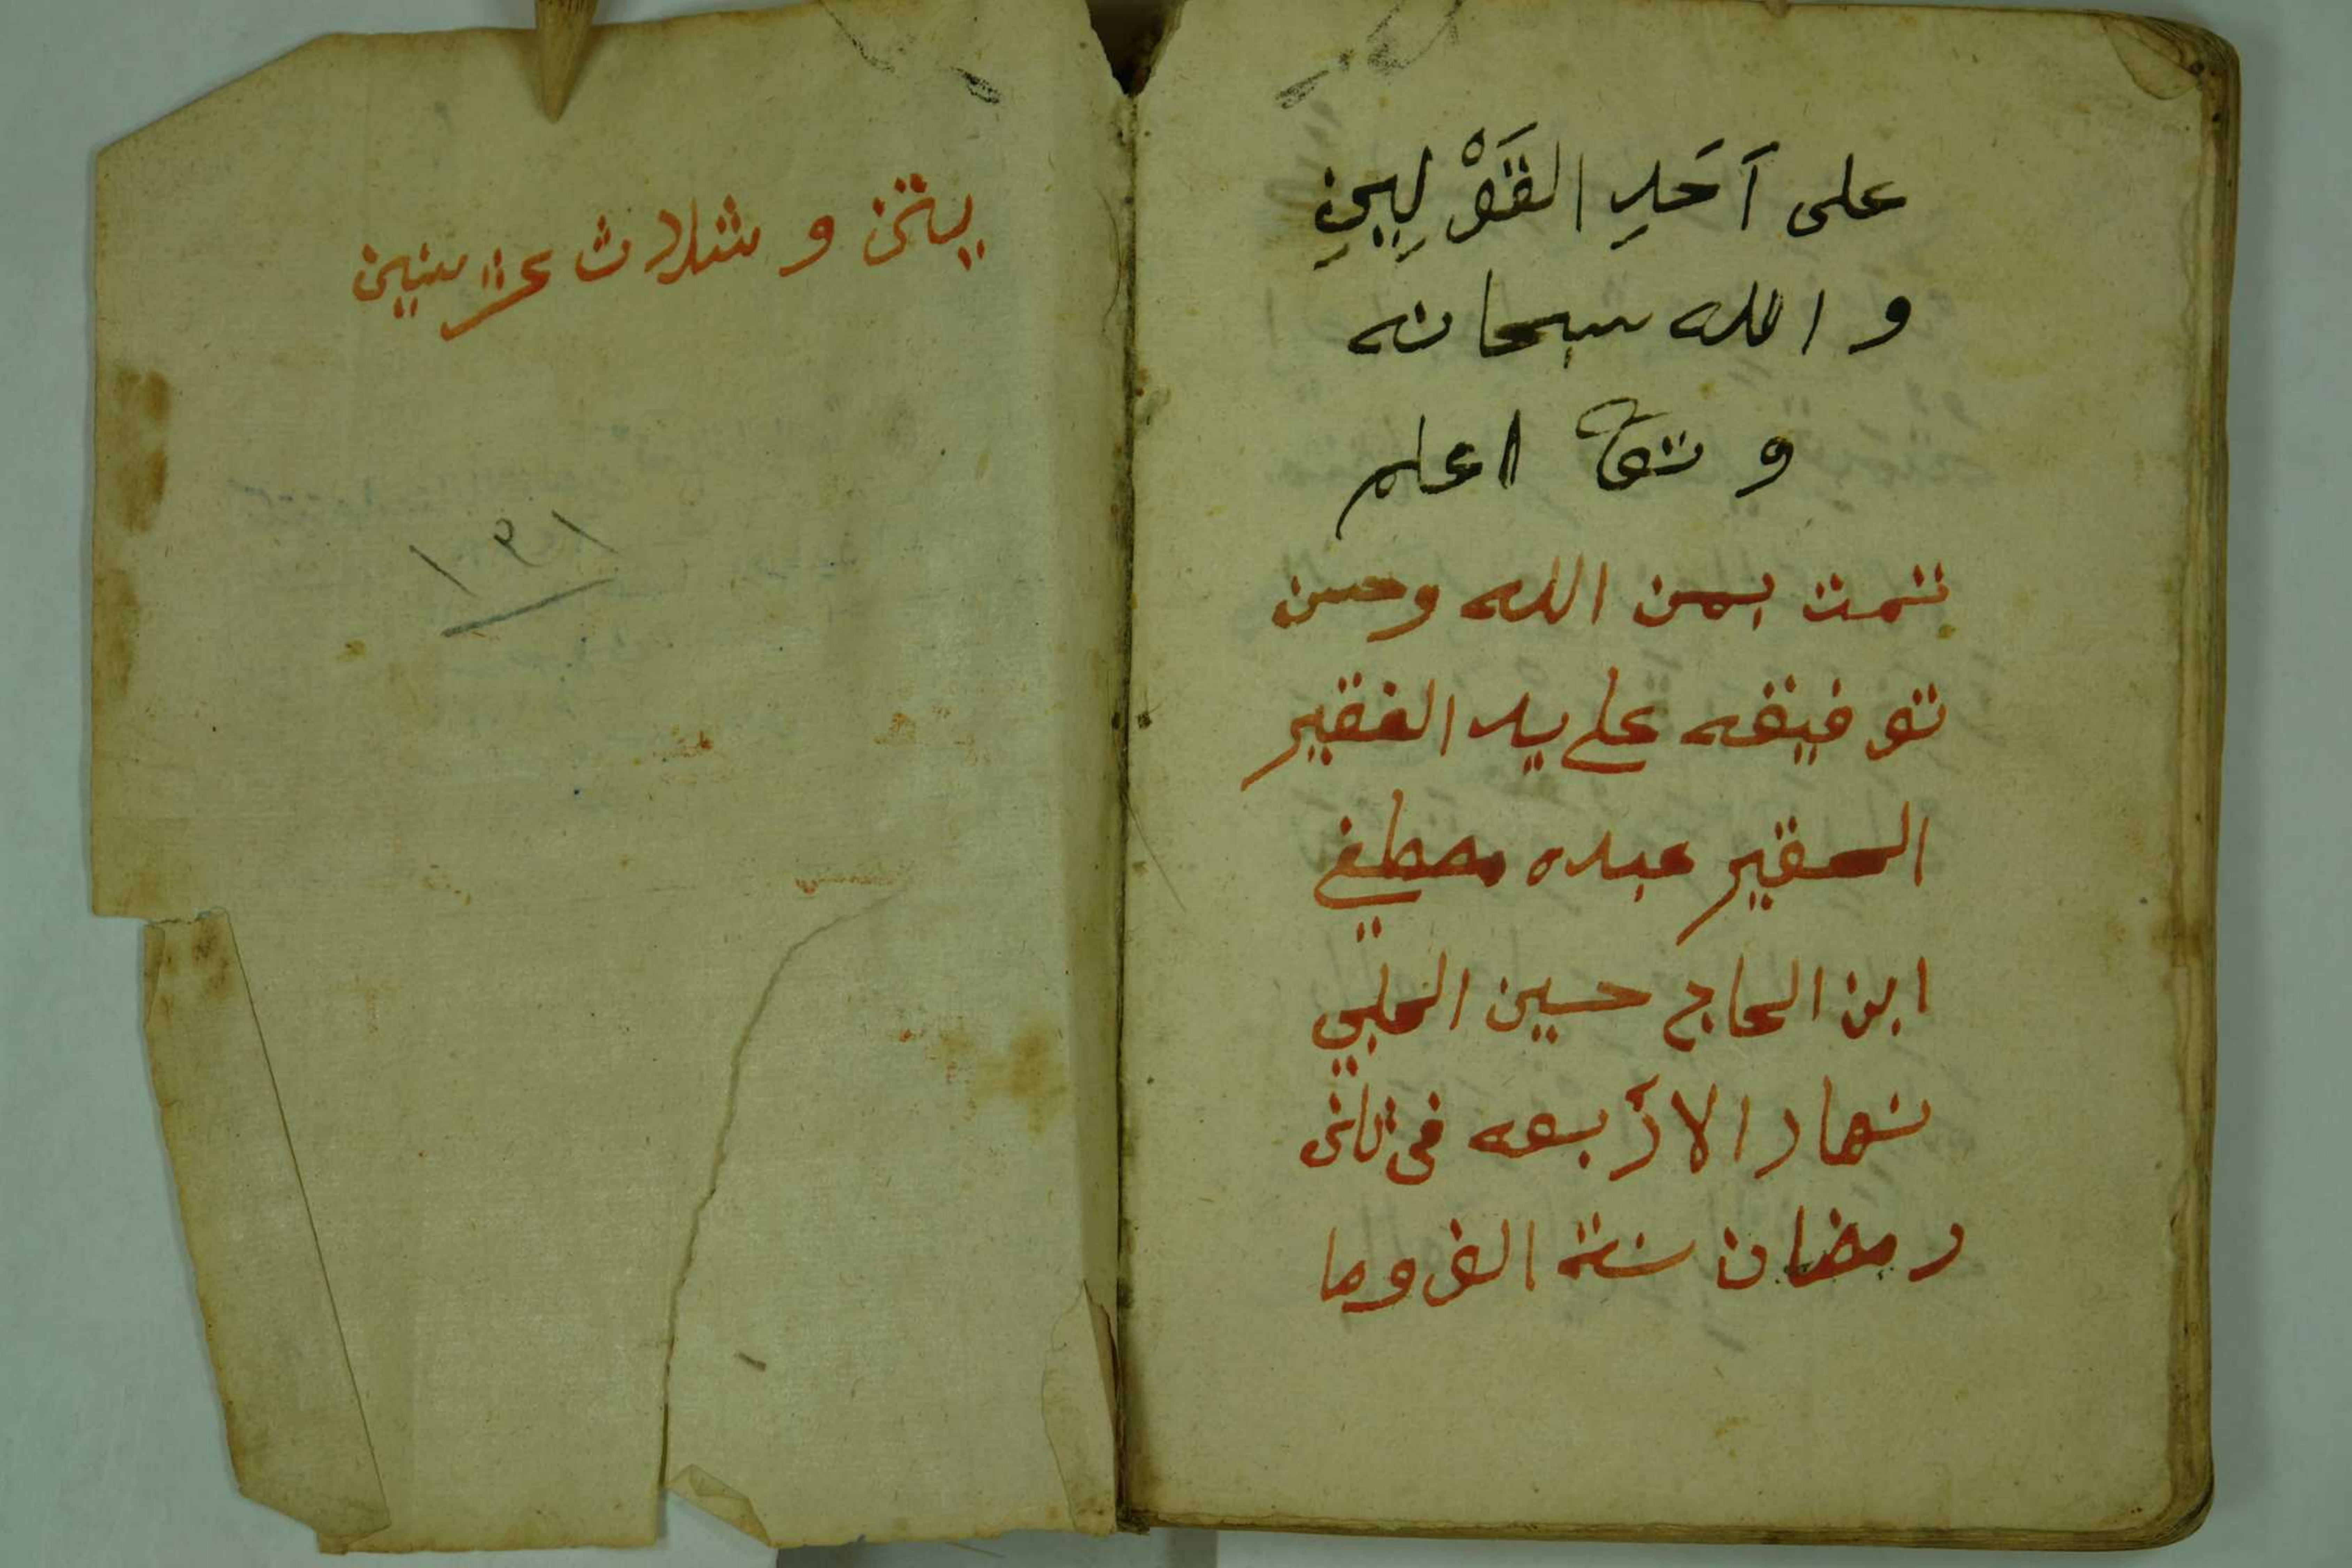 على اَحَدِ القَوْلِيِنِ
والله سبحانه
وتعا اعلم
تمت بمن الله وحسن
توفيقه على يد الفقير
الحقير عبده مصطفي
ابن الحاج حسين الحلبي
نهار الاربعه في ثاني
رمضان سنة الف وما
يتن وثلاث عشر سنين
١٩١